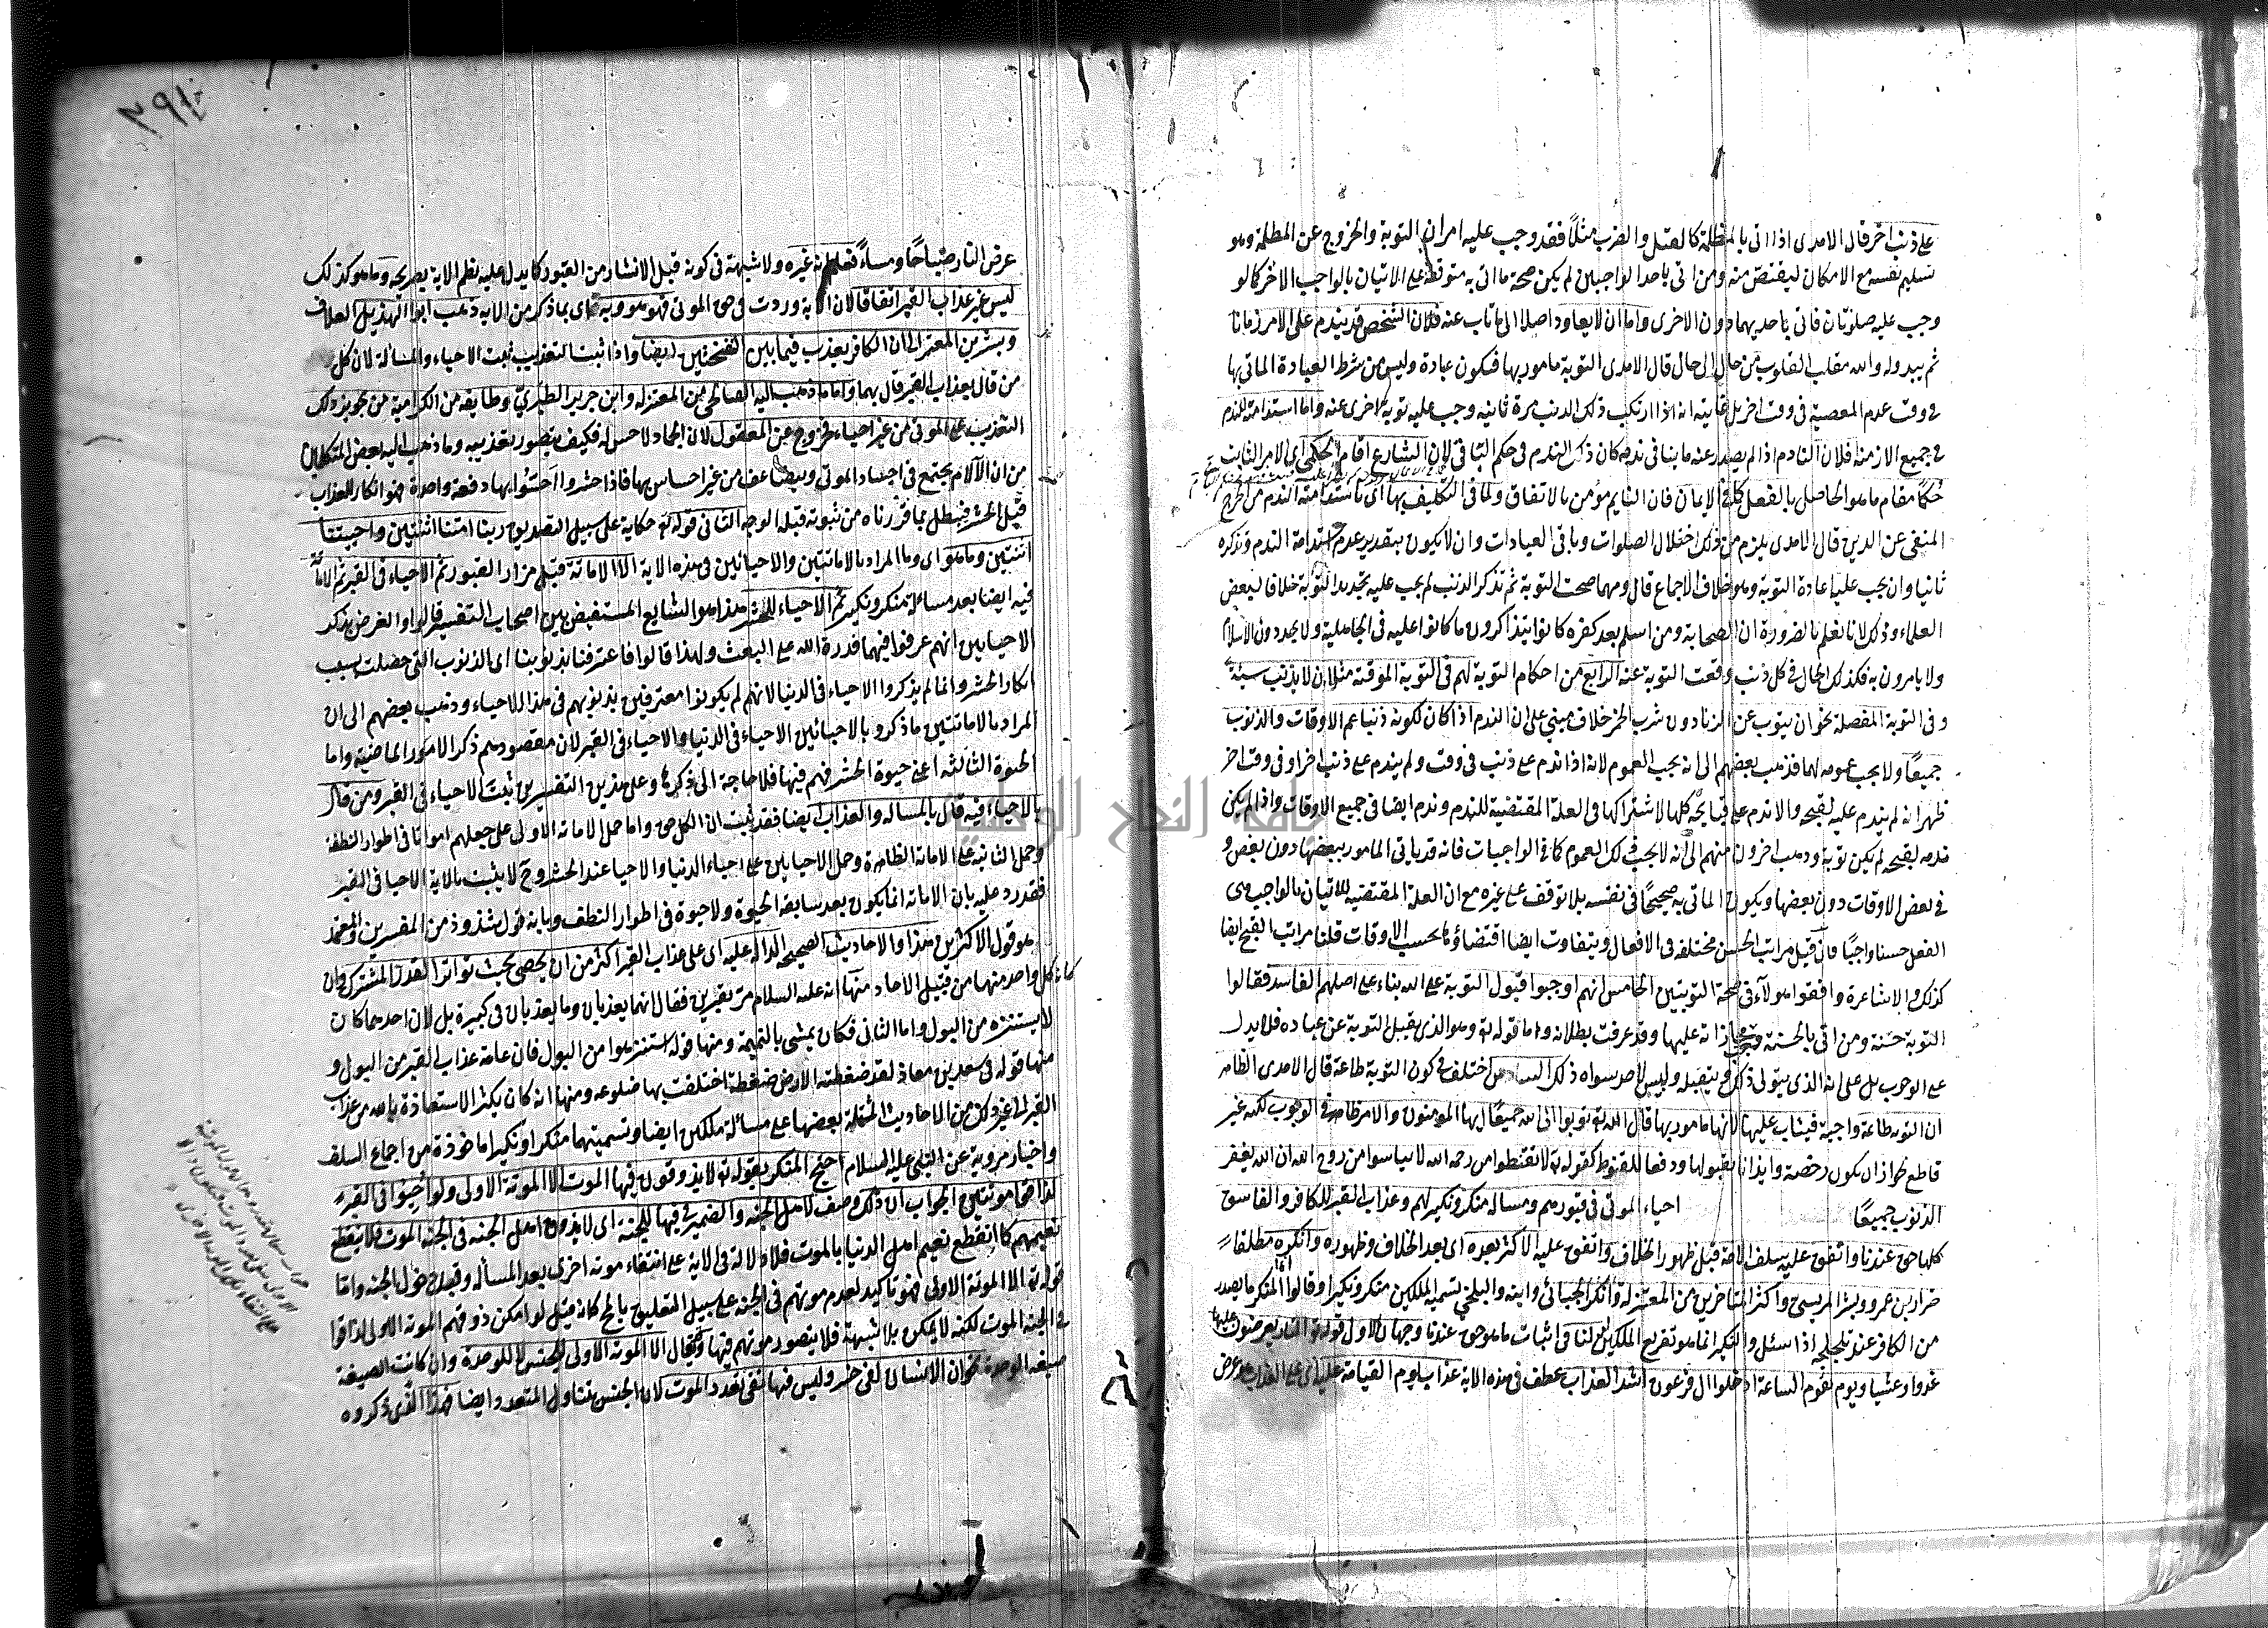 على ذنب آخر قال الامدى اذا اتى بالمظلمة كالقتل والضرب مثلاً فقد وجب عليه امران التوبة والخروج عن المظلمة وهو
تسليم نفسه مع الامكان ليقتص منه ومن اتى باحد الواجبين لم يكن صحة ما اتى به متوقفة على الاتيان بالواجب الآخر كما لو
وجب عليه صلوتان فاتى باحديهما دون الاخرى واما ان لا يعاود اصلا الى ما تاب عنه فلان الشخص قد يندم على الامر زمانا
ثم يبدو له والله مقلب القلوب من حال الى حال قال الامدى التوبة مامور بها فتكون عبادة وليس من شرط العبادة الماتى بها
فى وقت عدم المعصية فى وقت اخر بل غايته انه اذا ارتكب ذلك الذنب مرة ثانيه وجب عليه توبة اخرى عنه واما استدامته للندم
فى جميع الازمنة فلان النادم اذا لم يصدر عنه ما ينافى ندمه كان ذلك الندم فى حكم الباقى لان الشارع اقام الحكمى اى الامر الثابت
حكما مقام ما هو الحاصل بالفعل كما فى الايمان فان النايم مؤمن بالاتفاق ولما فى التكليف بها اى باستدامة الندم من الحرج
المنفى عن الدين قال الامدى يلزم من ذلك اختلال الصلوات وباقى العبادات وان لا يكون بتقدير عدم استدامة الندم وتذكره
ثانيا وان يجب عليه اعادة التوبة وهو خلاف الاجماع قال ومهما صحت التوبة ثم تذكر الذنب لم يجب عليه تجديد التوبة خلافا لبعض
العلماء وذلك لانا نعلم بالضرورة ان الصحابة ومن اسلم بعد كفره كانوا يتذاكرون ما كانوا عليه فى الجاهلية ولا يجددون الاسلام
ولا يامرون به فكذلك الحال فى كل ذنب وقعت التوبة عنه الرابع من احكام التوبة لهم فى التوبة الموقتة مثل ان لا يذنب سنة
وفى التوبة المفصلة نحو ان يتوب عن الزنا دون شرب الخمر خلاف مبنى على ان الندم اذا كان لكونه ذنبا عم الاوقات والذنوب
جميعًا ولا يجب عمومه لهما فذهب بعضهم الى انه يجب العموم لانه اذا ندم على ذنب فى وقت ولم يندم على ذنب اخر او فى وقت اخر
ظهر انه لم يندم عليه لقبحه والا ندم على قبايحه كلها لاشتراكها فى العلة المقتضية للندم وندم ايضا فى جميع الاوقات واذا لم يكن
ندمه لقبحه لم يكن توبة وذهب اخرون منهم الى انه لا يجب ذلك العموم كما فى الواجبات فانه قد ياتى المامور ببعضها دون بعض و
فى بعض الاوقات دون بعضها ويكون الماتى به صحيحًا فى نفسه بلا توقف على غيره مع ان العلة المقتضيه للاتيان بالواجب هى
الفعل حسنا واجبًا فان قيل مراتب الحسن مختلفه فى الافعال ويتفاوت ايضا اقتضاؤها بحسب الاوقات قلنا مراتب القبح ايضا
كذلك والاشاعرة وافقوا هولآء فى صحة التوبتين الخامس انهم اوجبوا قبول التوبة على الله بناء على اصلهم الفاسد فقالوا
التوبة حسنة ومن اتى بالحسنة وجب مجازاته عليها وقد عرفت بطلانه واما قوله تع وهو الذى يقبل التوبة عن عباده فلا يدل
على الوجوب بل على انه الذى يتولى ذلك ويتقبله وليس لاحد سواه ذلك السادس اختلف فى كون التوبة طاعة قال الامدى الظاهر
ان التوبة طاعة واجبة فيثاب عليها لانها مامور بها قال الله تع توبوا الى الله جميعًا ايها المومنون والامر ظاهر فى الوجوب لكنه غير
قاطع لجواز ان يكون رخصة وايذانا بقبولها ودفعا للقنوط كقوله تع لا تقنطوا من رحمة الله لا تياسوا من روح الله ان الله يغفر
الذنوب جميعًا احياء الموتى فى قبورهم ومسالة منكر ونكير لهم وعذاب القبر للكافر والفاسق
كلها حق عندنا واتفق عليه سلف الامة قبل ظهور الخلاف واتفق عليه الاكثر بعده اى بعد الخلاف وظهوره وانكره مطلقا
ضرار بن عمرو وبشر المريسى واكثر المتاخرين من المعتزلة وانكر الجبائى وابنه والبلخى تسمية الملكين منكرا ونكيرا وقالوا انما المنكر ما يصدر
من الكافر عند تلجلجه اذا سئل والنكير انما هو تقريع الملكين له لنا فى اثبات ما هو حق عندنا وجهان الاول قوله تع النار يعرضون عليها
غدوا وعشيا ويوم تقوم الساعة ادخلوا ال فرعون اشد العذاب عطف فى هذه الاية عذاب يوم القيامة عليه اى على العذاب الذى هو عرض
٣٩١
عرض النار صباحًا ومساءً فعلم انه غيره ولا شبهة فى كونه قبل الانشار من القبور كما يدل عليه نظم الاية بصريحه وما هو كذلك
ليس غير عذاب القبر اتفاقا لان الآية وردت فى حق الموتى فهو هو وبه اى بما ذكر من الاية ذهب ابو الهذيل العلاف
وبشر بن المعتمر الى ان الكافر يعذب فيما بين النفختين ايضا واذا ثبت التعذيب ثبت الاحياء والمسألة لان كل
من قال بعذاب القبر قال بهما واما ما ذهب اليه الصالحى من المعتزله وابن جرير الطبرى وطايفه من الكرامية من تجويز ذلك
التعذيب على الموتى من غير احياء فخروج عن المعقول لان الجماد لا حس له فكيف يتصور تعذيبه وما ذهب اليه بعض المتكلمين
من ان الآلام يجتمع فى اجساد الموتى ويتضاعف من غير احساس بها فاذا حشروا احسوا بها دفعة واحدة فهو انكار للعذاب
قبل الحشر فيبطل بما قررناه من ثبوته قبله الوجه الثانى قوله تع حكاية على سبيل التصديق ربنا امتنا اثنتين واحييتنا
اثنتين وما هو اى وما المراد بالاماتتين والاحيائين فى هذه الاية الا الاماتة قبل مزار القبور ثم الاحياء فى القبر ثم الاماتة
فيه ايضا بعد مسالة منكر ونكير ثم الاحياء للحشر هذا هو الشايع المستفيض بين اصحاب التفسير قالوا والغرض بذكر
الاحيايين انهم عرفوا فيهما قدرة الله على البعث ولهذا قالوا فاعترفنا بذنوبنا اى الذنوب التى حصلت بسبب
انكار الحشر وانما لم يذكروا الاحياء فى الدنيا لانهم لم يكونوا معترفين بذنوبهم فى هذا الاحياء وذهب بعضهم الى ان
المراد بالاماتتين ما ذكر وبالاحيائين الاحياء فى الدنيا والاحياء فى القبر لان مقصودهم ذكر الامور الماضية واما
الحيوة الثالثه اعنى حيوة الحشر فهم فيها فلا حاجة الى ذكرها وعلى هذين التفسيرين ثبت الاحياء فى القبر ومن قال
بالاحياء فيه قال بالمساله والعذاب ايضا فقد ثبت ان الكل حق واما حمل الاماته الاولى على جعلهم امواتا فى اطوار النطفة
وحمل الثانيه على الاماتة الظاهرة وحمل الاحيايين على احياء الدنيا والاحيا عند الحشر وح لا يثبت بالاية الاحيا فى القبر
فقد رد عليه بان الاماته انما يكون بعد سابقه الحيوة ولا حيوة فى اطوار النطف وبانه قول شذوذ من المفسرين والمعتمد
هو قول الاكثرين هذا والاحاديث الصحيحه الداله عليه اى على عذاب القبر اكثر من ان يحصى بحيث تواتر القدر المشترك وان
كان كل واحد منها من قبيل الاحاد منها انه عليه السلام مر بقبرين فقال انهما يعذبان وما يعذبان فى كبيرة بل لان احدهما كان
لا يستنزه من البول واما الثانى فكان يمشى بالنميمة ومنها قوله استنزهوا من البول فان عامة عذاب القبر من البول و
منها قوله فى سعد بن معاذ لقد ضغطته الارض ضغطة اختلفت بها ضلوعه ومنها انه كان يكثر الاستعاذة بالله من عذاب
القبر الى غير ذلك من الاحاديث المشتملة بعضها على مسألة ملكين ايضا وتسميتهما منكرا ونكيرا ماخوذة من اجماع السلف
واخبار مروية عن النبى عليه السلام احتج المنكر بقوله تع لا يذوقون فيها الموت الا الموتة الاولى ولو احيوا فى القبر
لذاقوا موتتين الجواب ان ذلك وصف لاهل الجنه والضمير فى فيها للجنة اى لا يذوق اهل الجنه فى الجنه الموت فلا ينقطع
نعيمهم كما انقطع نعيم اهل الدنيا بالموت فلا دلالة فى الاية على انتفاء موته اخرى بعد المسأله وقبل دخول الجنه واما
قوله تع الا الموتة الاولى فهو تاكيد لعدم موتهم فى الجنه على سبيل التعليق بالمح كانه قيل لو امكن ذوقهم الموتة الاولى لذاقوا
فى الجنه الموت لكنه لا يمكن بلا شبهة فلا يتصور موتهم فيها وقد يقال الا الموتة الاولى للجنس لا للوحدة وان كانت الصيغة
صيغة الوحدة نحو ان الانسان لفى خسر وليس فيها نفى تعدد الموت لان الجنس يتناول المتعدد وايضا فهذا الذى ذكروه
جامعة النجاح الوطنية